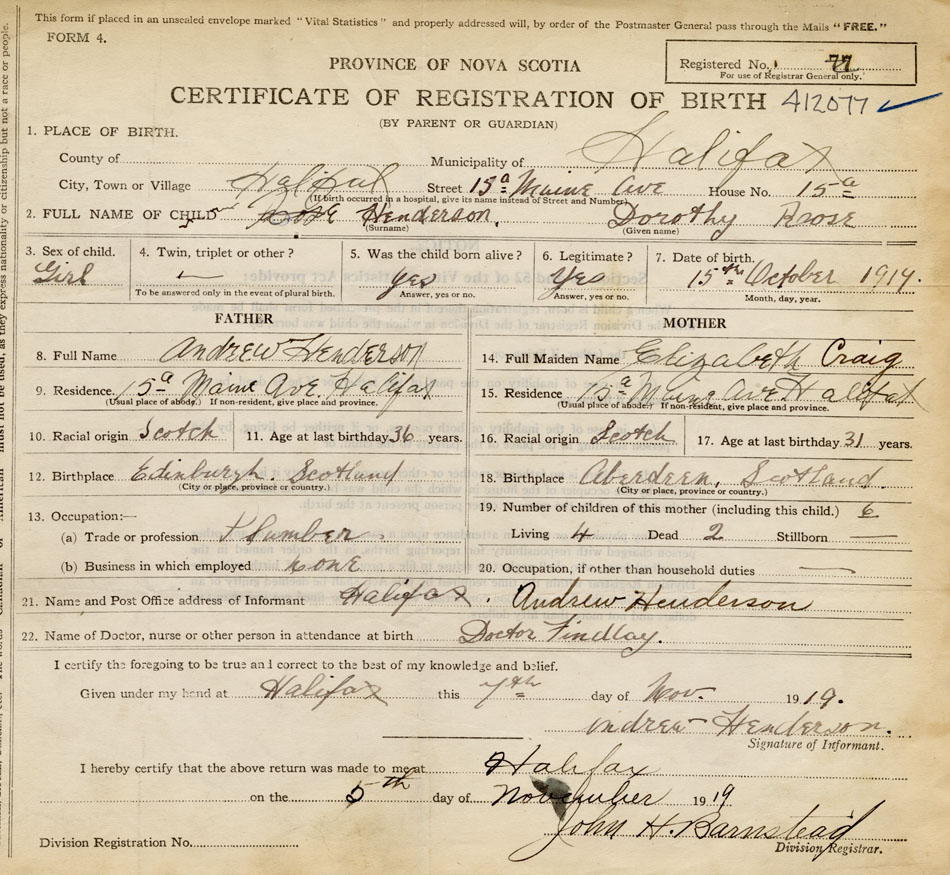 This form if placed in an unsealed envelope marked "Vital Statistics" and properly addressed will, by order of the Postmaster General pass through the Mails "FREE."
FORM 4.
Registered No. 77
For use of Registrar General only.
PROVINCE OF NOVA SCOTIA
CERTIFICATE OF REGISTRATION OF BIRTH 412077
(BY PARENT OR GUARDIAN)
1. PLACE OF BIRTH.
County of Municipality of Halifax
City, Town or Village Halifax Street 15a Maine Ave House No. 15a
(If birth occurred in a hospital, give its name instead of Street and Number)
2. FULL NAME OF CHILD Henderson. Dorothy Rose
(Surname) (Given name)
3. Sex of child. 4. Twin, triplet or other? 5. Was the child born alive? 6. Legitimate? 7. Date of birth.
Girl — Yes Yes 15th October 1919.
To be answered only in the event of plural birth. Answer, yes or no. Answer, yes or no. Month, day, year.
FATHER MOTHER
8. Full Name Andrew Henderson 14. Full Maiden Name Elizabeth Craig
9. Residence 15a Maine Ave. Halifax 15. Residence 15a Maine Ave Halifax
(Usual place of abode.) If non-resident, give place and province. (Usual place of abode.) If non-resident, give place and province.
10. Racial origin Scotch 11. Age at last birthday 36 years. 16. Racial origin Scotch 17. Age at last birthday 31 years.
12. Birthplace Edinburgh. Scotland 18. Birthplace Aberdeen, Scotland.
(City or place, province or country.) (City or place, province or country.)
13. Occupation:— 19. Number of children of this mother (including this child.) 6
(a) Trade or profession Plumber Living 4 Dead 2 Stillborn —
(b) Business in which employed none 20. Occupation, if other than household duties —
21. Name and Post Office address of Informant Halifax. Andrew Henderson
22. Name of Doctor, nurse or other person in attendance at birth Doctor Findlay.
I certify the foregoing to be true and correct to the best of my knowledge and belief.
Given under my hand at Halifax this 7th day of Nov. 1919.
Andrew Henderson.
Signature of Informant.
I hereby certify that the above return was made to me at Halifax
on the 5th day of November 1919
John H. Barnstead
Division Registration No. Division Registrar.